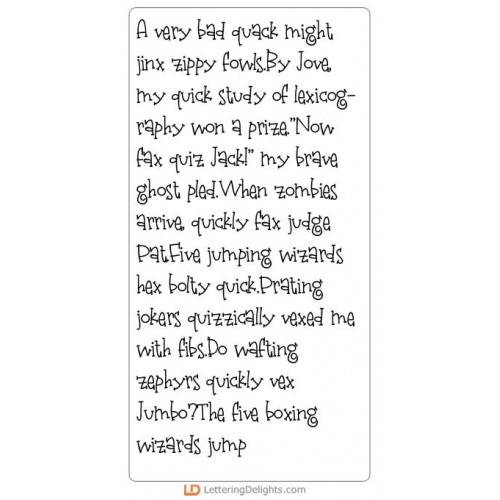 A very bad quack might
jinx zippy fowls.By Jove,
my quick study of lexicog-
raphy won a prize."Now
fax quiz Jack!" my brave
ghost pled.When zombies
arrive, quickly fax judge
Pat.Five jumping wizards
hex bolty quick.Prating
jokers quizzically vexed me
with fibs.Do wafting
zephyrs quickly vex
Jumbo?The five boxing
wizards jump
LD LetteringDelights.com